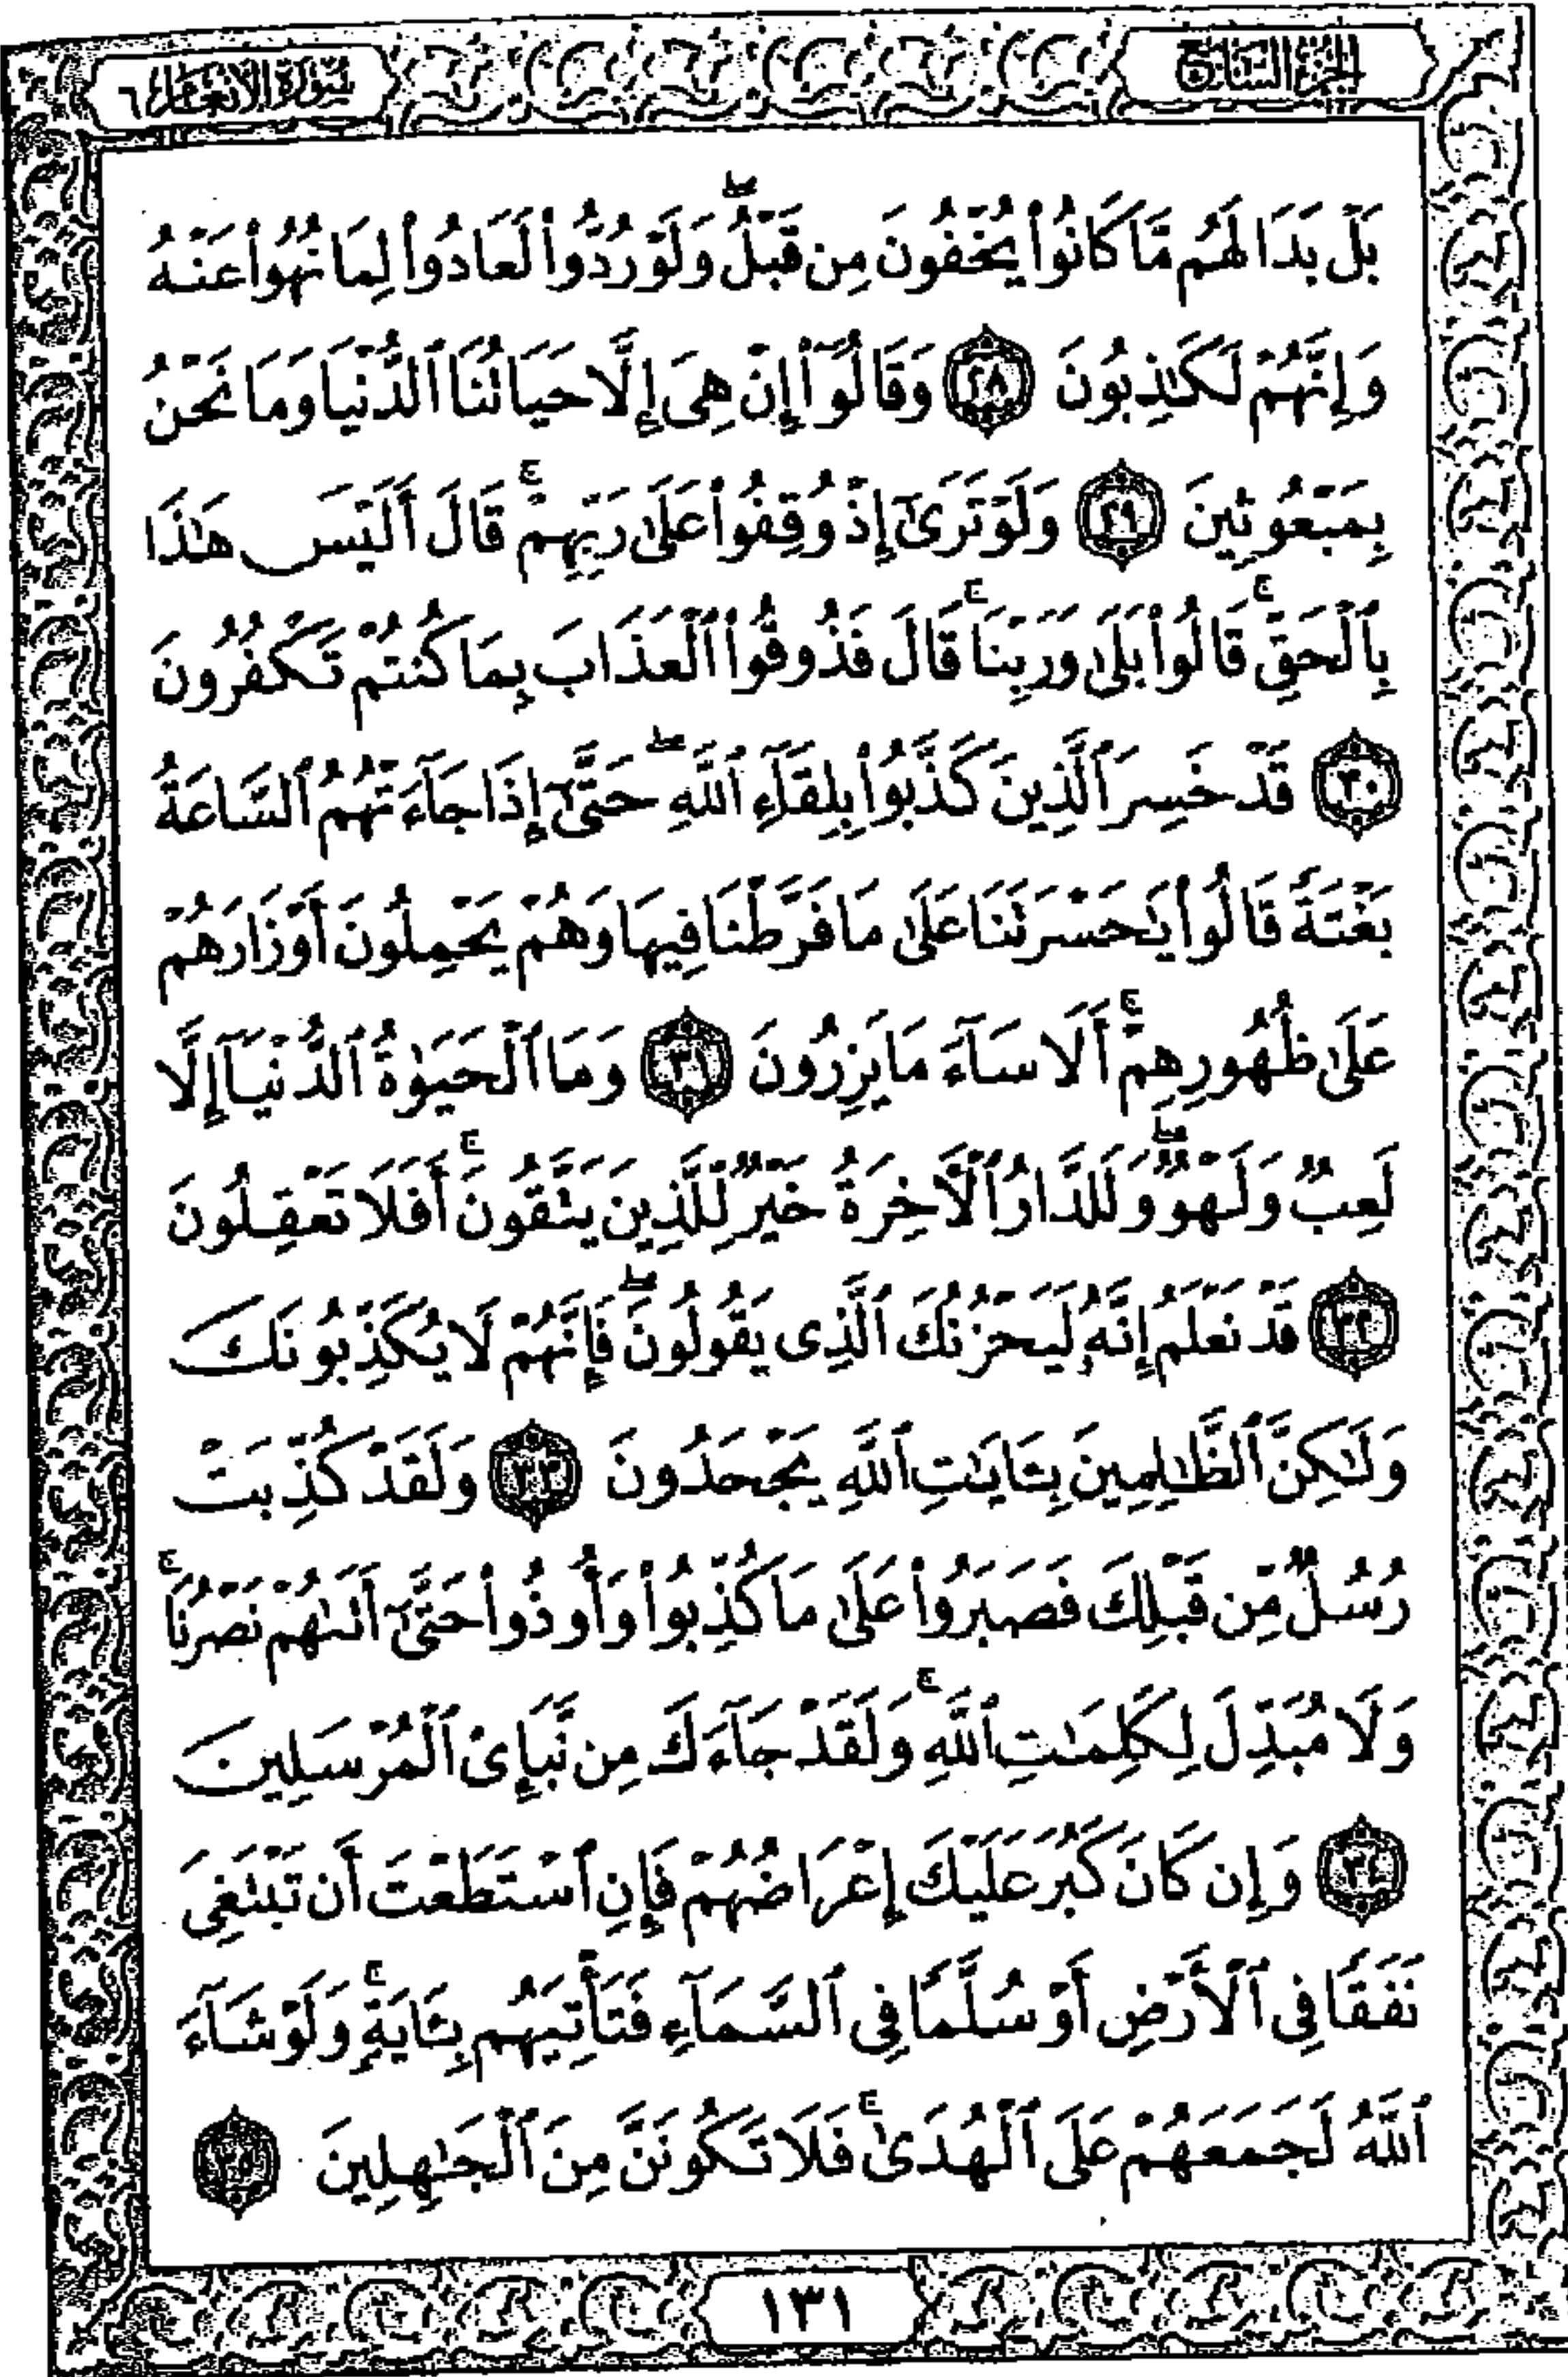 الجزء السابع
سورة الأنعام ٦
بَلْ بَدَا لَهُم مَّا كَانُوا۟ يُخْفُونَ مِن قَبْلُ ۖ وَلَوْ رُدُّوا۟ لَعَادُوا۟ لِمَا نُهُوا۟ عَنْهُ
وَإِنَّهُمْ لَكَـٰذِبُونَ ٢٨ وَقَالُوٓا۟ إِنْ هِىَ إِلَّا حَيَاتُنَا ٱلدُّنْيَا وَمَا نَحْنُ
بِمَبْعُوثِينَ ٢٩ وَلَوْ تَرَىٰٓ إِذْ وُقِفُوا۟ عَلَىٰ رَبِّهِمْ ۚ قَالَ أَلَيْسَ هَـٰذَا
بِٱلْحَقِّ ۚ قَالُوا۟ بَلَىٰ وَرَبِّنَا ۚ قَالَ فَذُوقُوا۟ ٱلْعَذَابَ بِمَا كُنتُمْ تَكْفُرُونَ
٣٠ قَدْ خَسِرَ ٱلَّذِينَ كَذَّبُوا۟ بِلِقَآءِ ٱللَّهِ ۖ حَتَّىٰٓ إِذَا جَآءَتْهُمُ ٱلسَّاعَةُ
بَغْتَةً قَالُوا۟ يَـٰحَسْرَتَنَا عَلَىٰ مَا فَرَّطْنَا فِيهَا وَهُمْ يَحْمِلُونَ أَوْزَارَهُمْ
عَلَىٰ ظُهُورِهِمْ ۚ أَلَا سَآءَ مَا يَزِرُونَ ٣١ وَمَا ٱلْحَيَوٰةُ ٱلدُّنْيَآ إِلَّا
لَعِبٌ وَلَهْوٌ ۖ وَلَلدَّارُ ٱلْـَٔاخِرَةُ خَيْرٌ لِّلَّذِينَ يَتَّقُونَ ۗ أَفَلَا تَعْقِلُونَ
٣٢ قَدْ نَعْلَمُ إِنَّهُۥ لَيَحْزُنُكَ ٱلَّذِى يَقُولُونَ ۖ فَإِنَّهُمْ لَا يُكَذِّبُونَكَ
وَلَـٰكِنَّ ٱلظَّـٰلِمِينَ بِـَٔايَـٰتِ ٱللَّهِ يَجْحَدُونَ ٣٣ وَلَقَدْ كُذِّبَتْ
رُسُلٌ مِّن قَبْلِكَ فَصَبَرُوا۟ عَلَىٰ مَا كُذِّبُوا۟ وَأُوذُوا۟ حَتَّىٰٓ أَتَىٰهُمْ نَصْرُنَا ۚ
وَلَا مُبَدِّلَ لِكَلِمَـٰتِ ٱللَّهِ ۚ وَلَقَدْ جَآءَكَ مِن نَّبَإِى۟ ٱلْمُرْسَلِينَ
٣٤ وَإِن كَانَ كَبُرَ عَلَيْكَ إِعْرَاضُهُمْ فَإِنِ ٱسْتَطَعْتَ أَن تَبْتَغِىَ
نَفَقًا فِى ٱلْأَرْضِ أَوْ سُلَّمًا فِى ٱلسَّمَآءِ فَتَأْتِيَهُم بِـَٔايَةٍ ۚ وَلَوْ شَآءَ
ٱللَّهُ لَجَمَعَهُمْ عَلَى ٱلْهُدَىٰ ۚ فَلَا تَكُونَنَّ مِنَ ٱلْجَـٰهِلِينَ ٣٥
١٣١